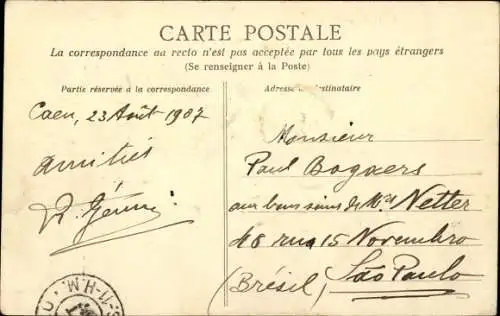 CARTE POSTALE
La correspondance au recto n'est pas acceptée par tous les pays étrangers
(Se renseigner à la Poste)
Partie réservée à la correspondance
Adresse destinataire
Caen, 23 Août 1907
amitiés
Monsieur
Paul Bogaers
aux bons soins de Mrs Netter
48 rua 15 Novembro
(Brésil) São Paulo